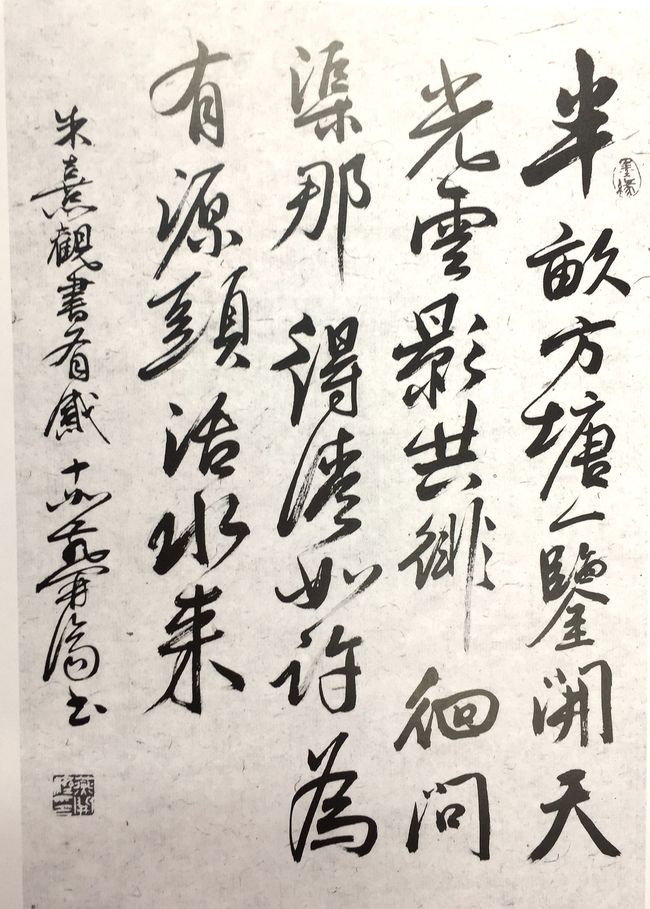 半畝方塘一鑒開天
墨緣
光雲影共徘徊問
渠那得清如許為
有源頭活水来
朱熹觀書有感 書